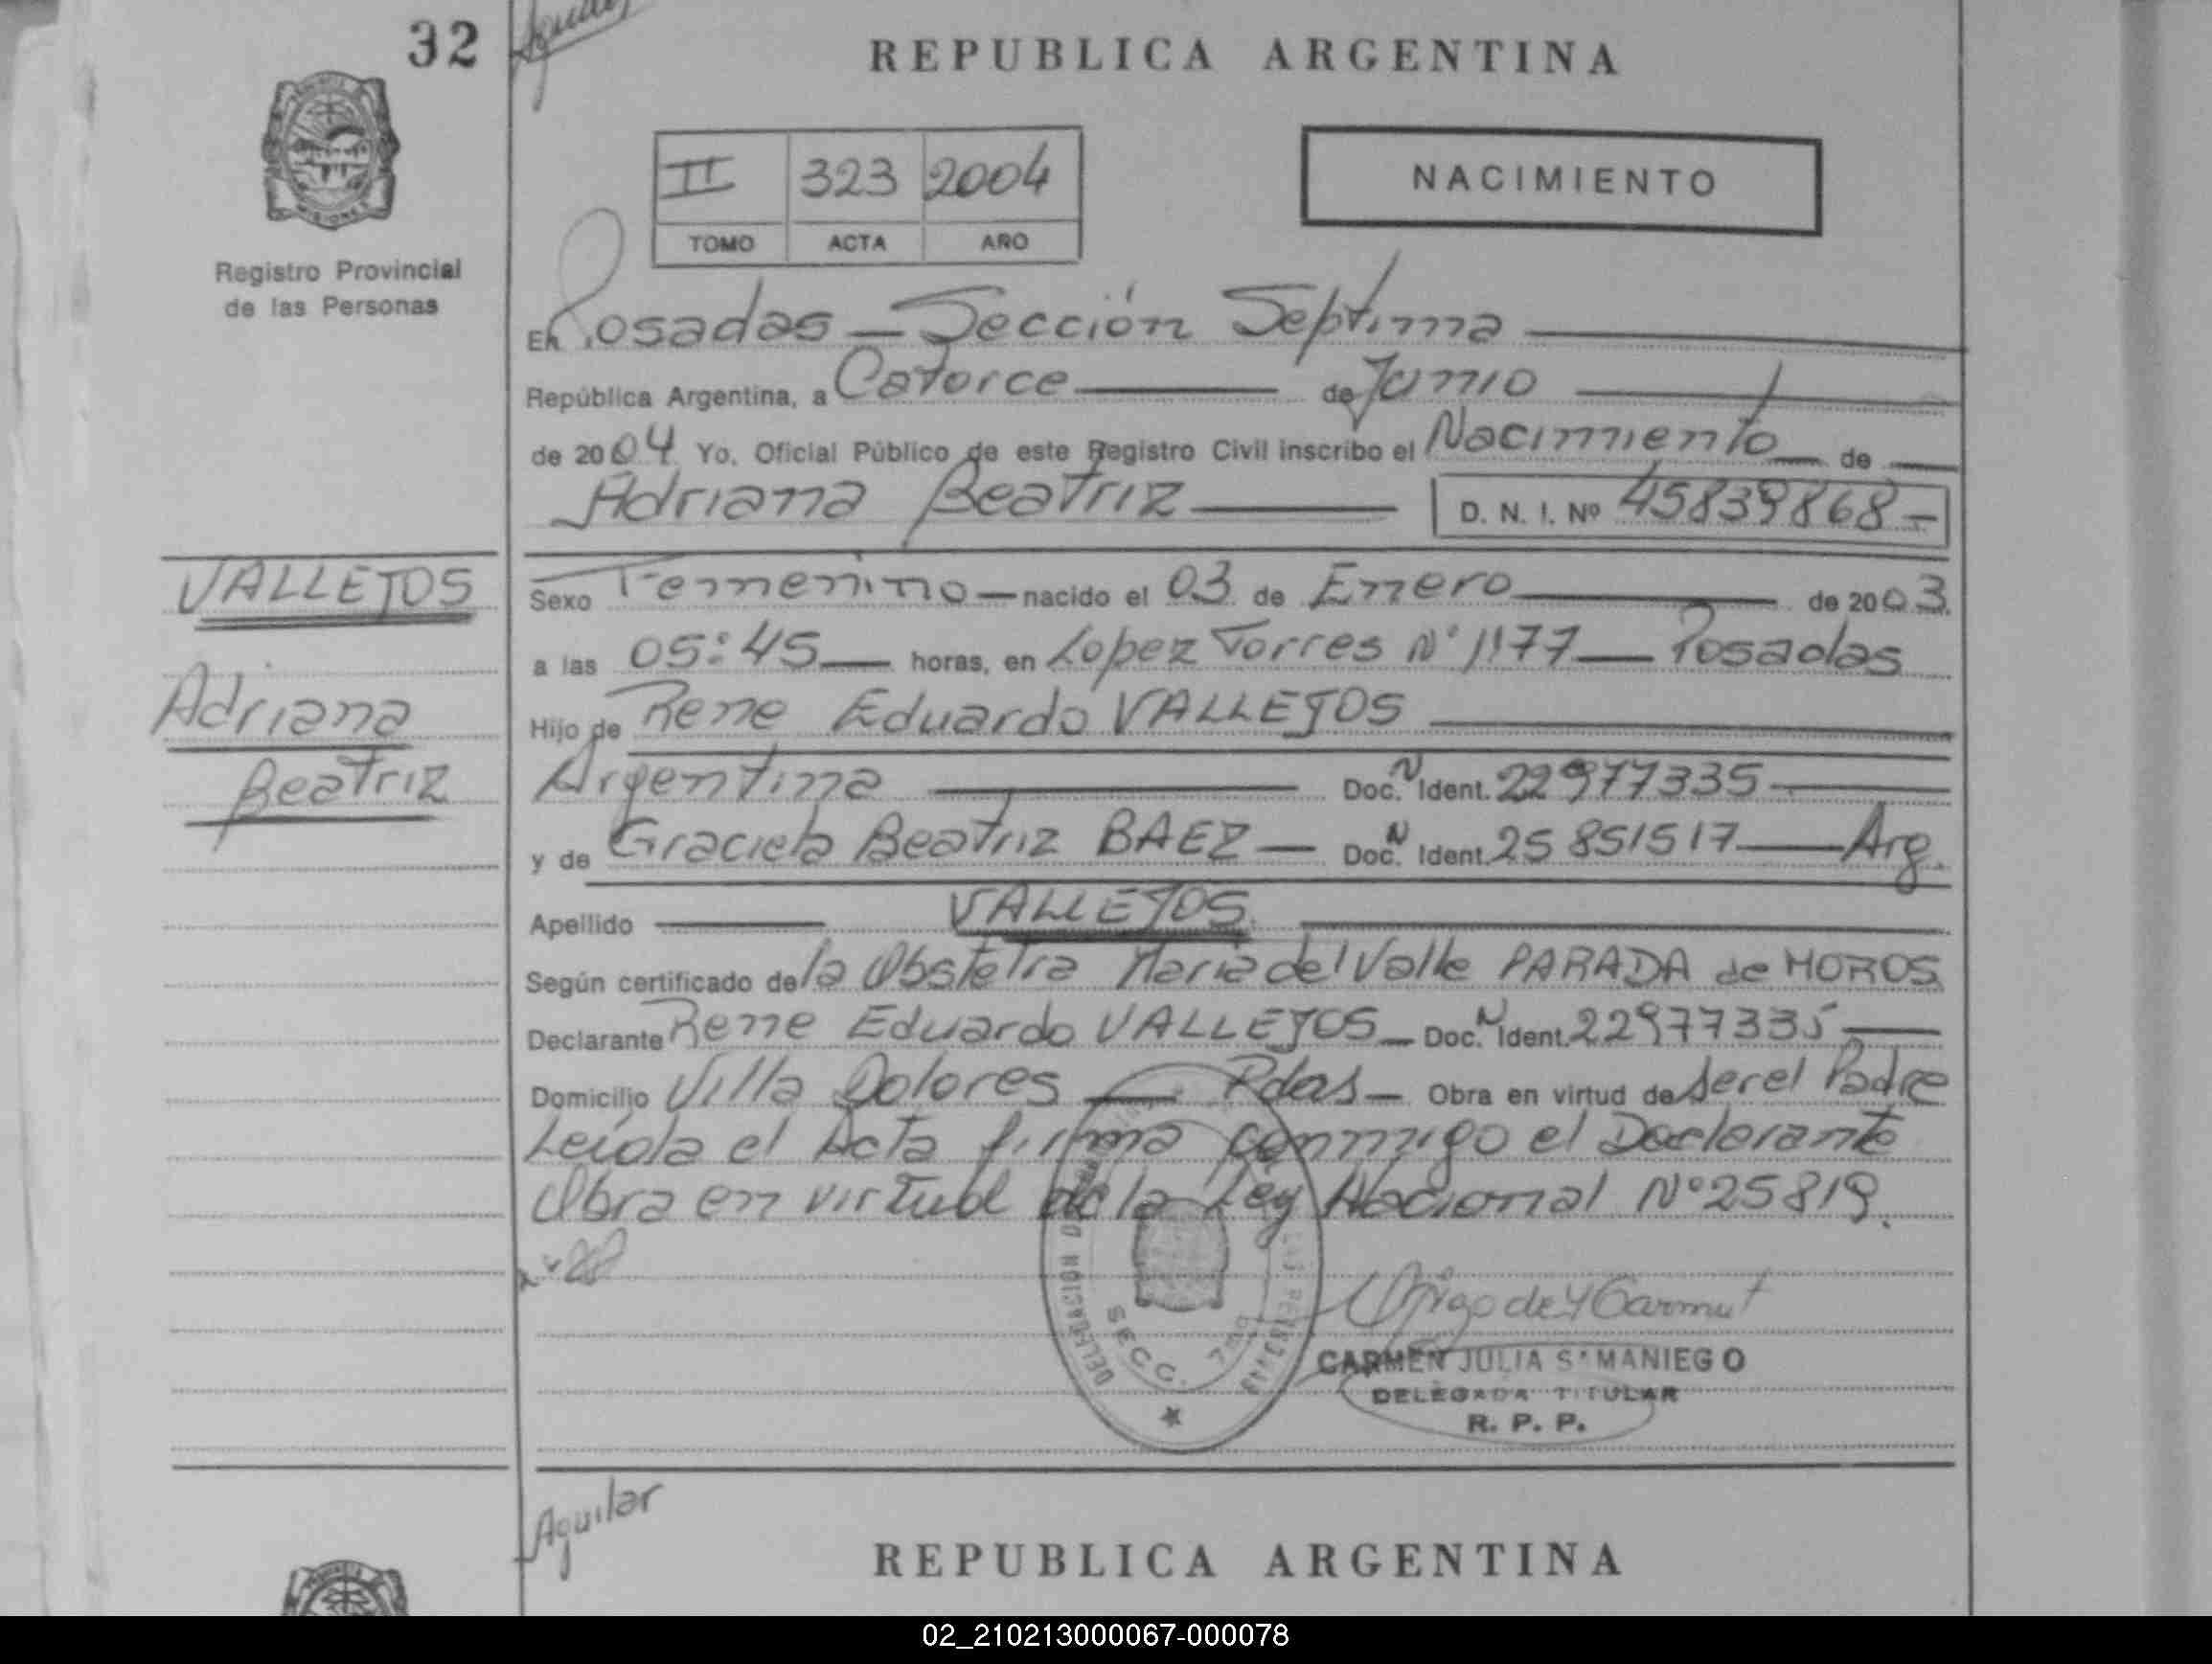 32
REPUBLICA ARGENTINA
II 323 2004
TOMO ACTA AÑO
NACIMIENTO
MISIONES
Registro Provincial
de las Personas
En Posadas — Sección Septima
República Argentina, a Catorce de Junio
de 2004 Yo, Oficial Público de este Registro Civil inscribo el Nacimiento de
Adriana Beatriz D. N. I. Nº 45839868-
VALLEJOS
Adriana
Beatriz
Sexo Femenino — nacido el 03 de Enero de 2003.
a las 05:45 horas, en Lopez Torres Nº 1177 — Posadas
Hijo de Rene Eduardo VALLEJOS
Argentina Doc. N Ident. 22977335
y de Graciela Beatriz BAEZ — Doc. N Ident. 25851517 — Arg.
Apellido VALLEJOS.
Según certificado de la Obstetra Maria del Valle PARADA de MOROS
Declarante Rene Eduardo VALLEJOS — Doc. N Ident. 22977335
Domicilio Villa Dolores — Pdas — Obra en virtud de ser el Padre
Leida el Acta firma conmigo el Declarante
Obra en virtud de la Ley Nacional Nº 25819.
SECC. 7
CARMEN JULIA SAMANIEGO
DELEGADA TITULAR
R. P. P.
Aguilar
REPUBLICA ARGENTINA
02_210213000067-000078